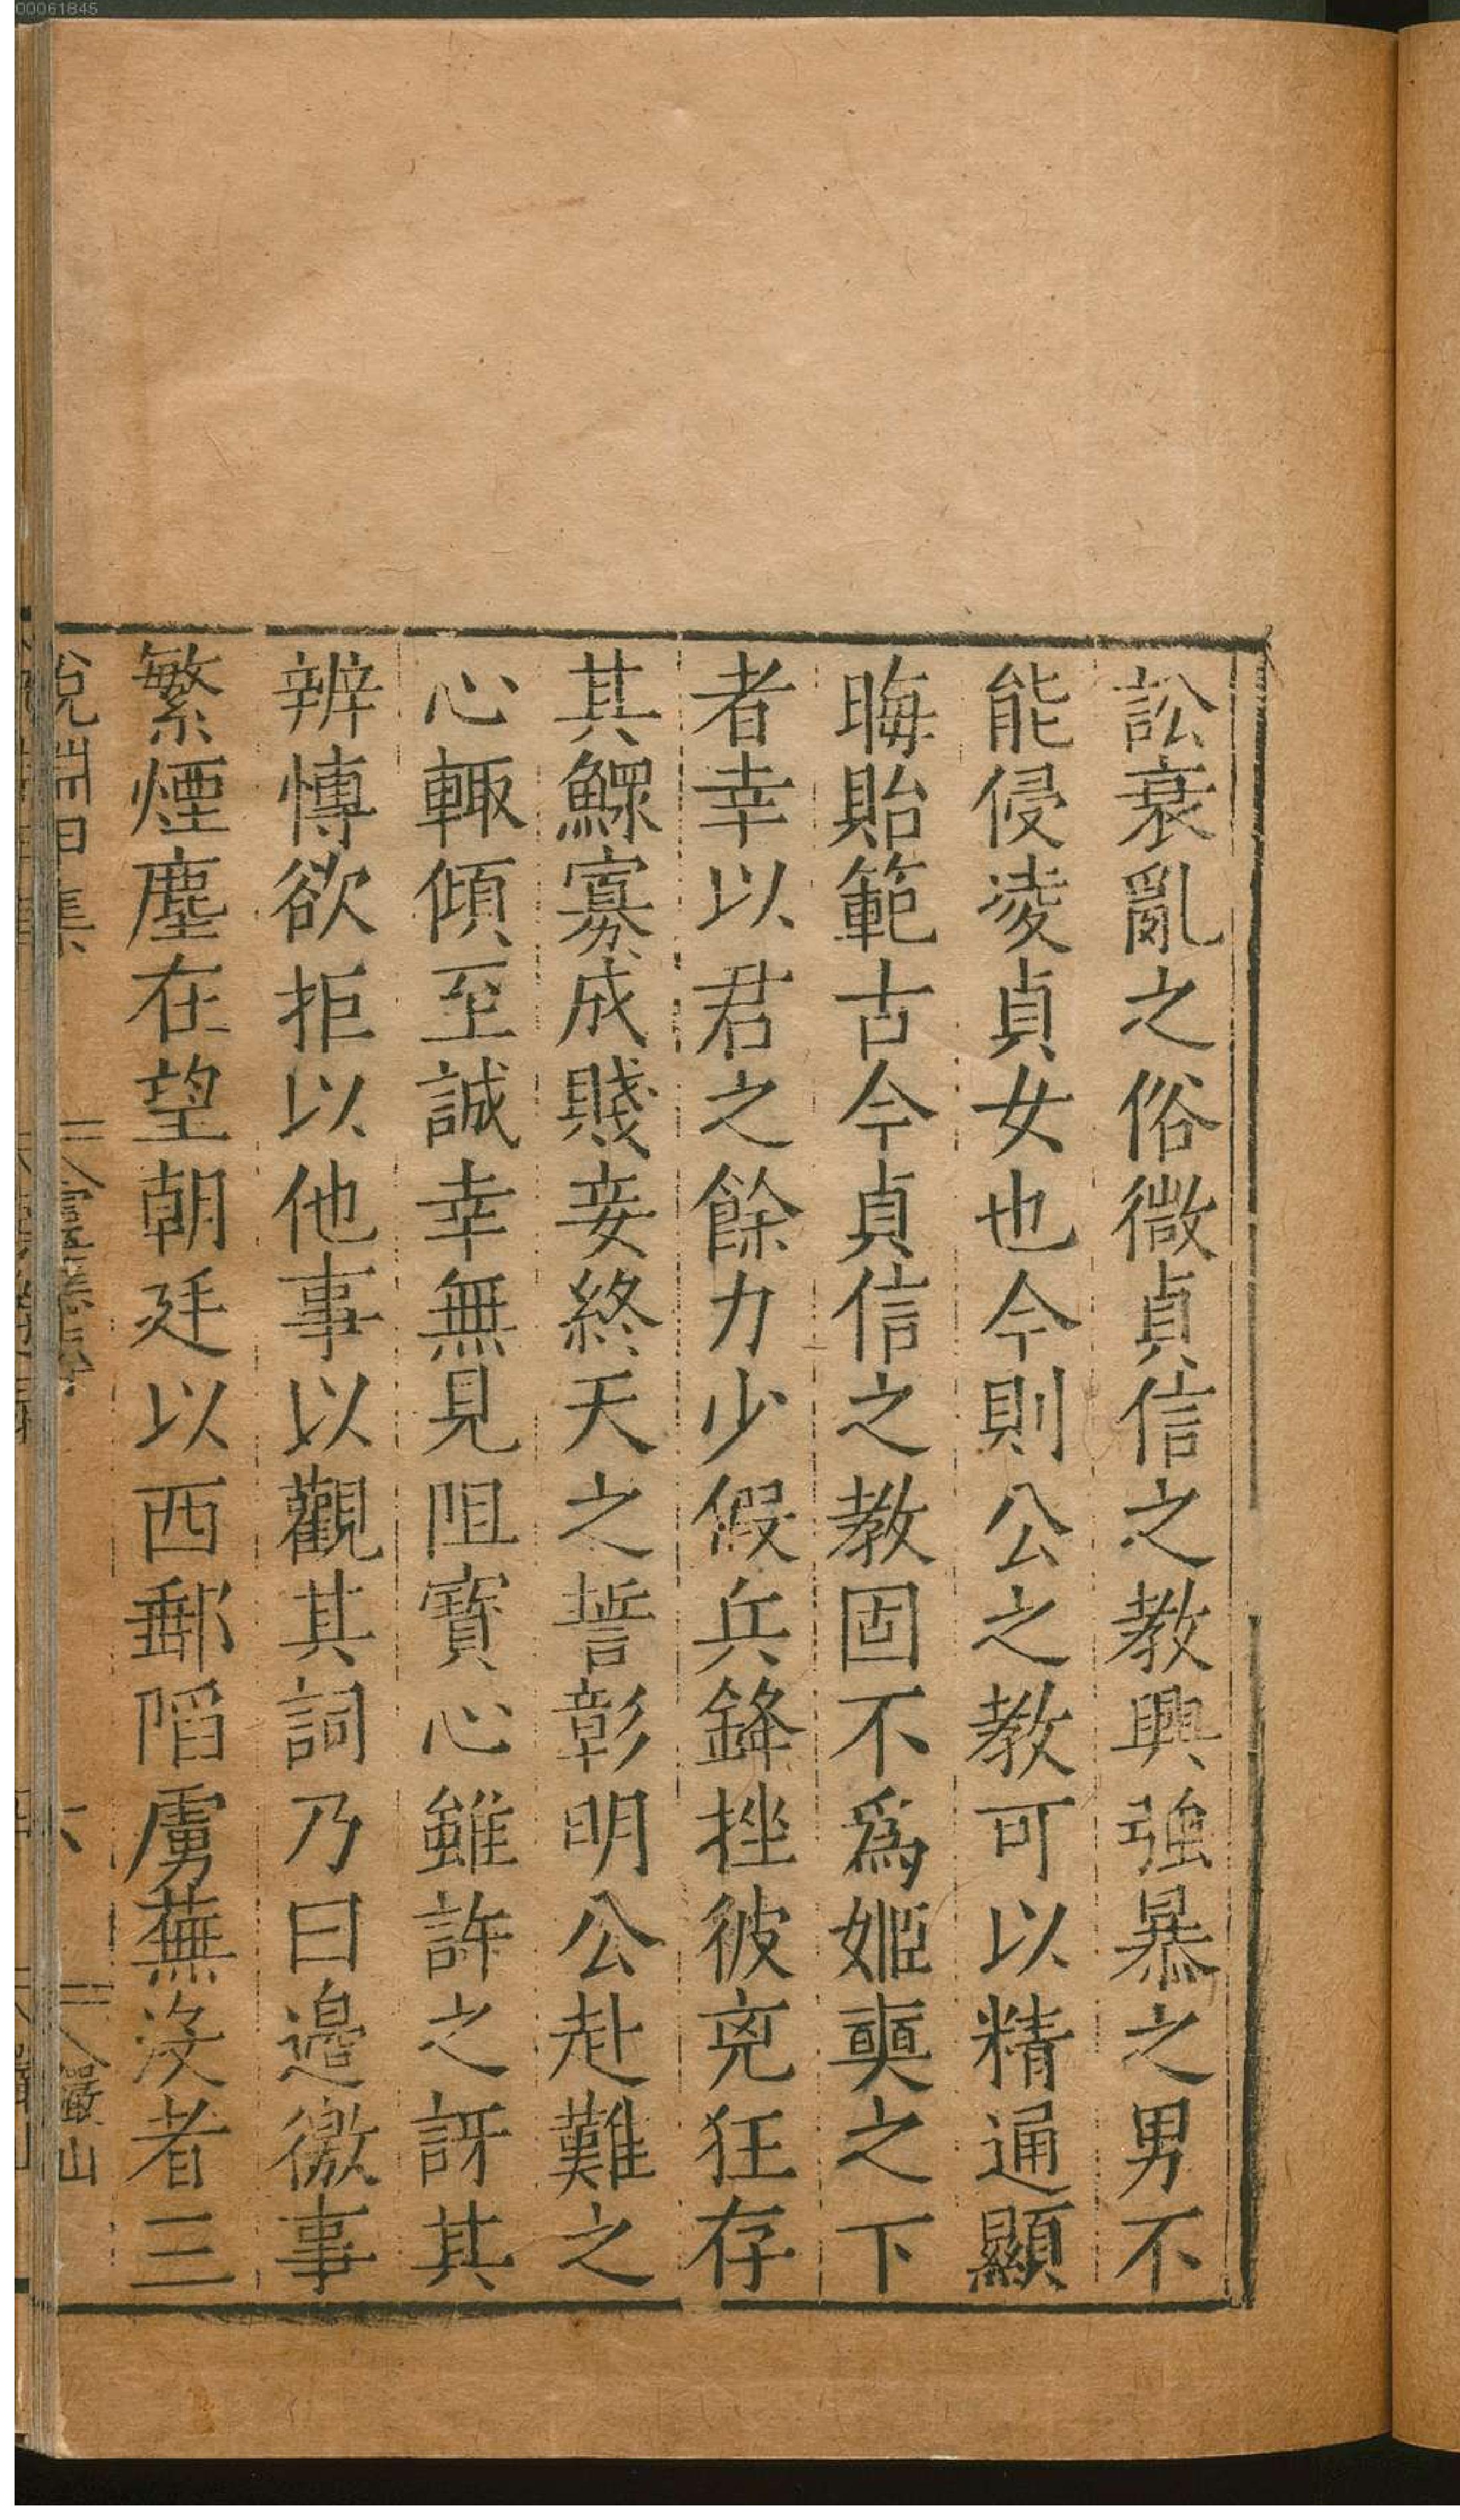 00061845
訟衰亂之俗微貞信之教興強暴之男不
能侵凌貞女也今則公之教可以精通顯
晦貽範古今貞信之教固不爲姬奭之下
者幸以君之餘力少假兵鋒挫彼兇狂存
其鰥寡成賤妾終天之誓彰明公赴難之
心輒傾至誠幸無見阻寶心雖許之訝其
辨慱欲拒以他事以觀其詞乃曰邉徼事
繁煙塵在望朝廷以西郵䧟虜蕪沒者三
說淵甲集
靈應傳
六
儼山